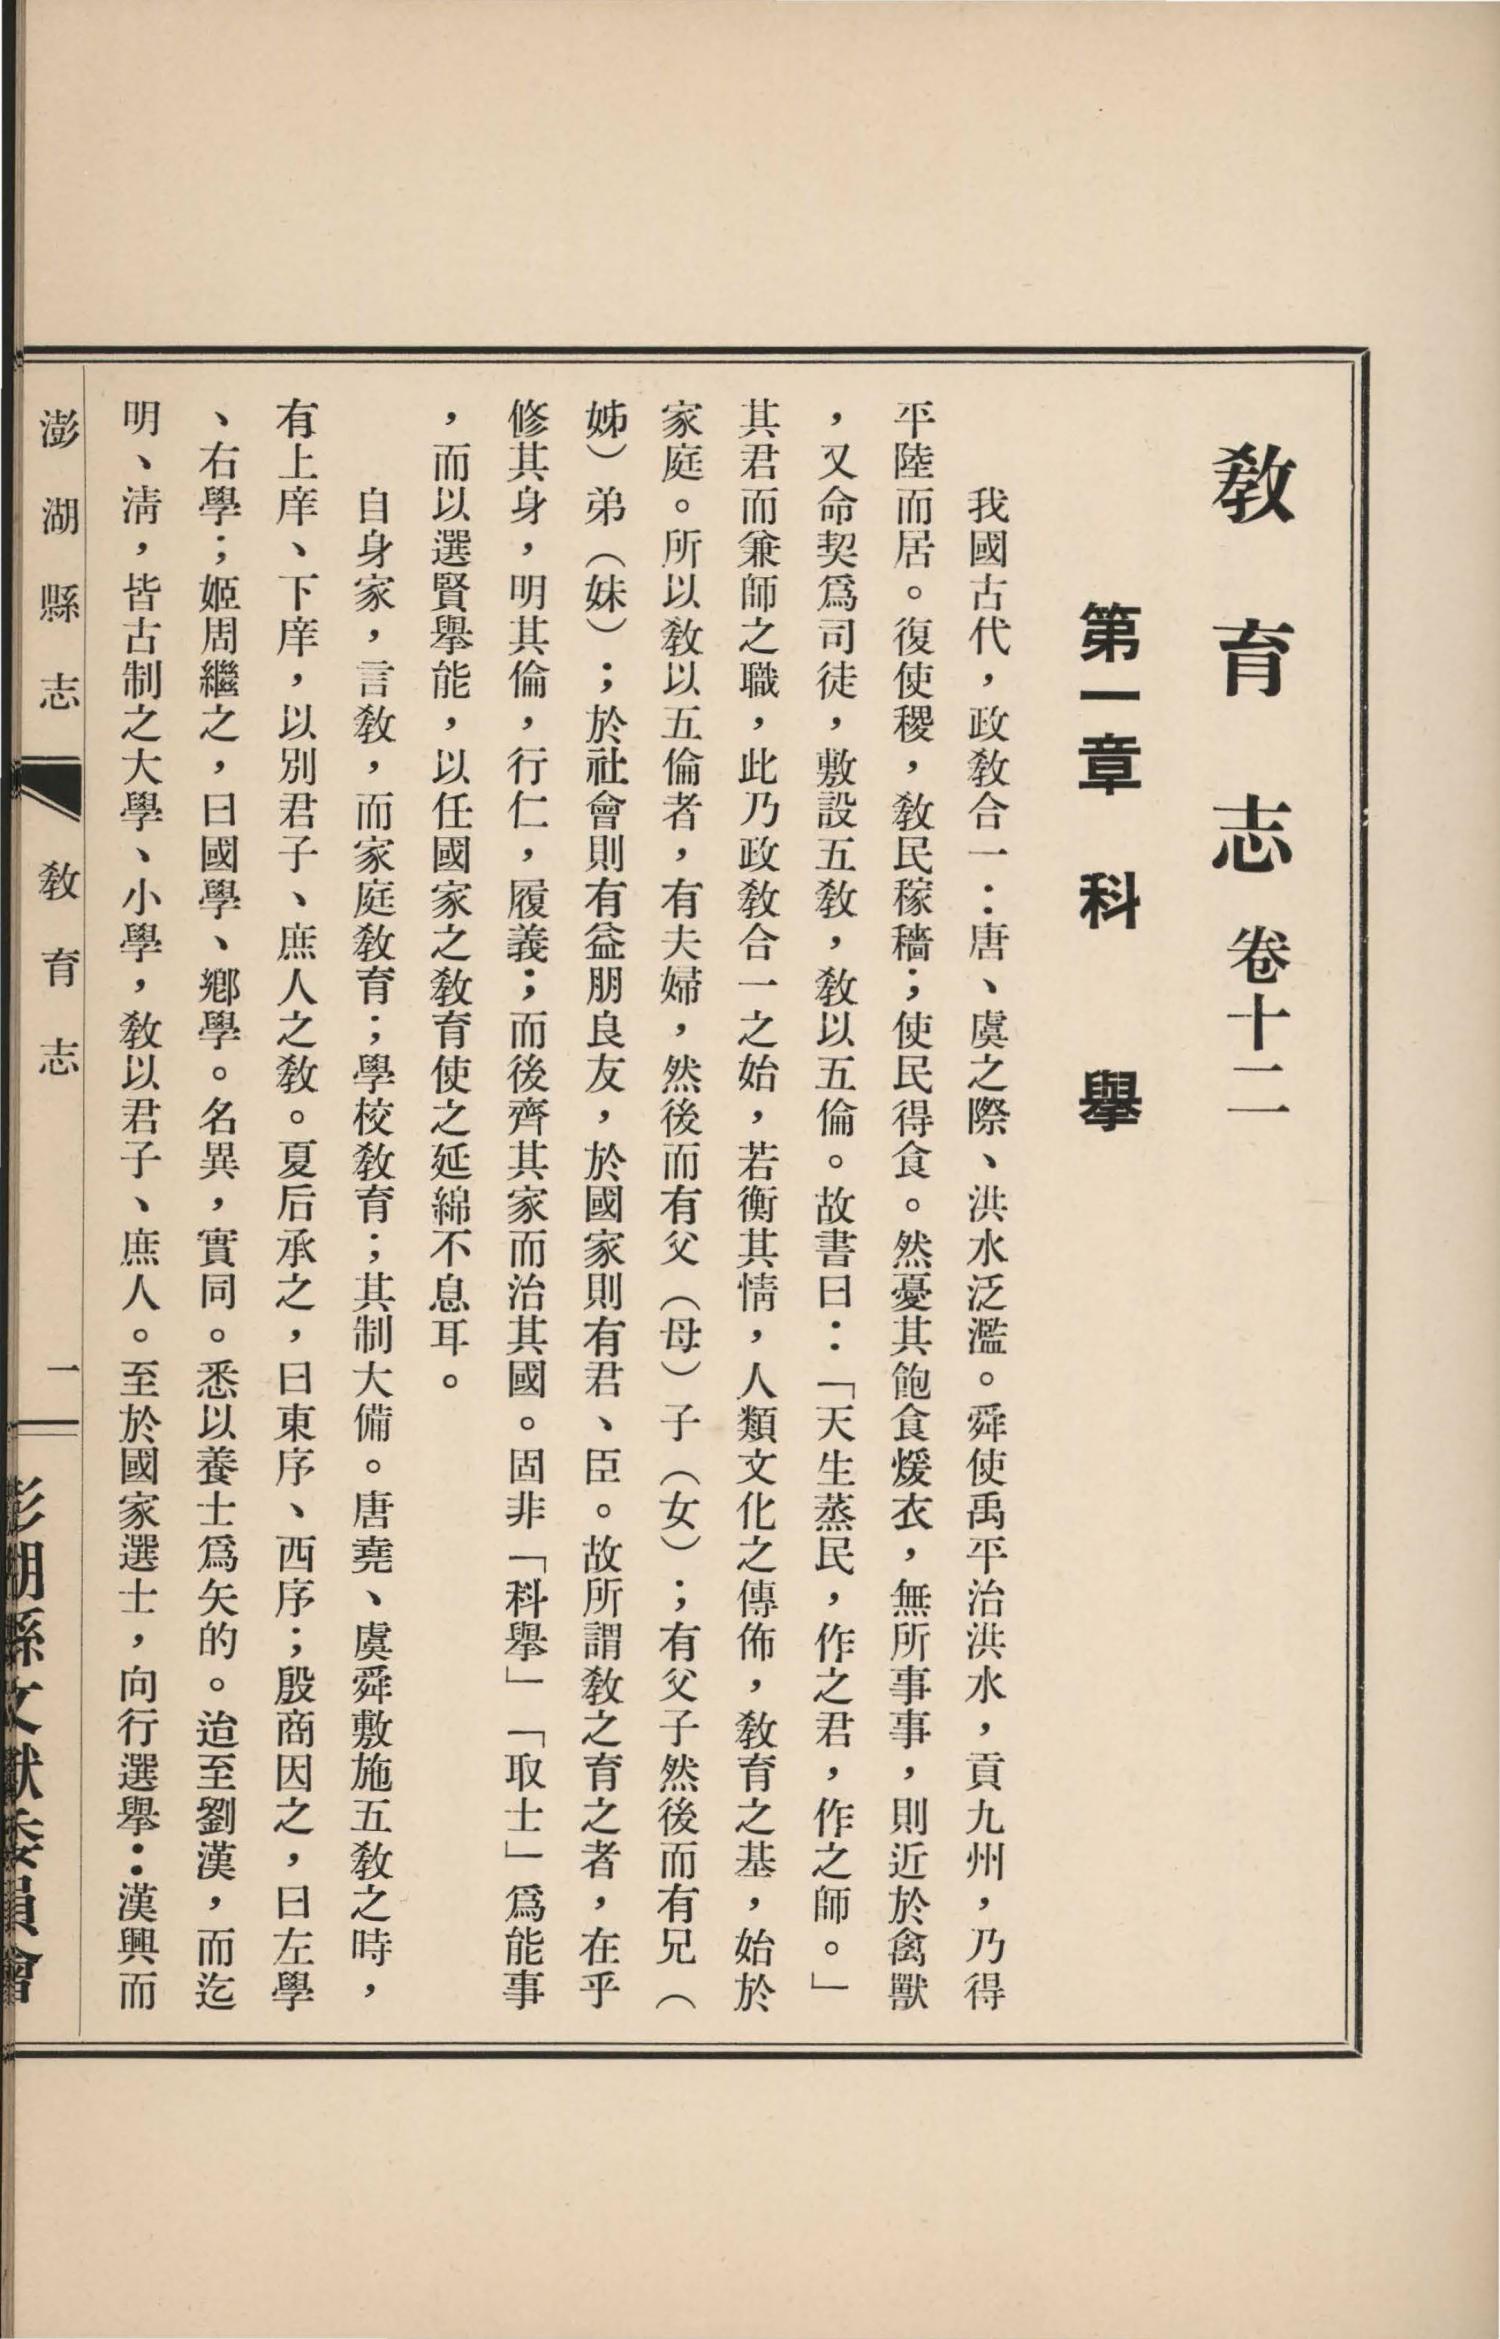 教育志 卷十二
第一章 科舉
我國古代，政教合一：唐、虞之際、洪水泛濫。舜使禹平治洪水，貢九州，乃得
平陸而居。復使稷，教民稼穡；使民得食。然憂其飽食煖衣，無所事事，則近於禽獸
，又命契爲司徒，敷設五教，教以五倫。故書曰：「天生蒸民，作之君，作之師。」
其君而兼師之職，此乃政教合一之始，若衡其情，人類文化之傳佈，教育之基，始於
家庭。所以教以五倫者，有夫婦，然後而有父（母）子（女）；有父子然後而有兄（
姊）弟（妹）；於社會則有益朋良友，於國家則有君、臣。故所謂教之育之者，在乎
修其身，明其倫，行仁，履義；而後齊其家而治其國。固非「科舉」「取士」爲能事
，而以選賢舉能，以任國家之教育使之延綿不息耳。
自身家，言教，而家庭教育；學校教育；其制大備。唐堯、虞舜敷施五教之時，
有上庠、下庠，以別君子、庶人之教。夏后承之，曰東序、西序；殷商因之，曰左學
、右學；姬周繼之，曰國學、鄉學。名異，實同。悉以養士爲矢的。迨至劉漢，而迄
明、淸，皆古制之大學、小學，教以君子、庶人。至於國家選士，向行選舉：漢興而
澎湖縣志 教育志 一
澎湖縣文獻委員會